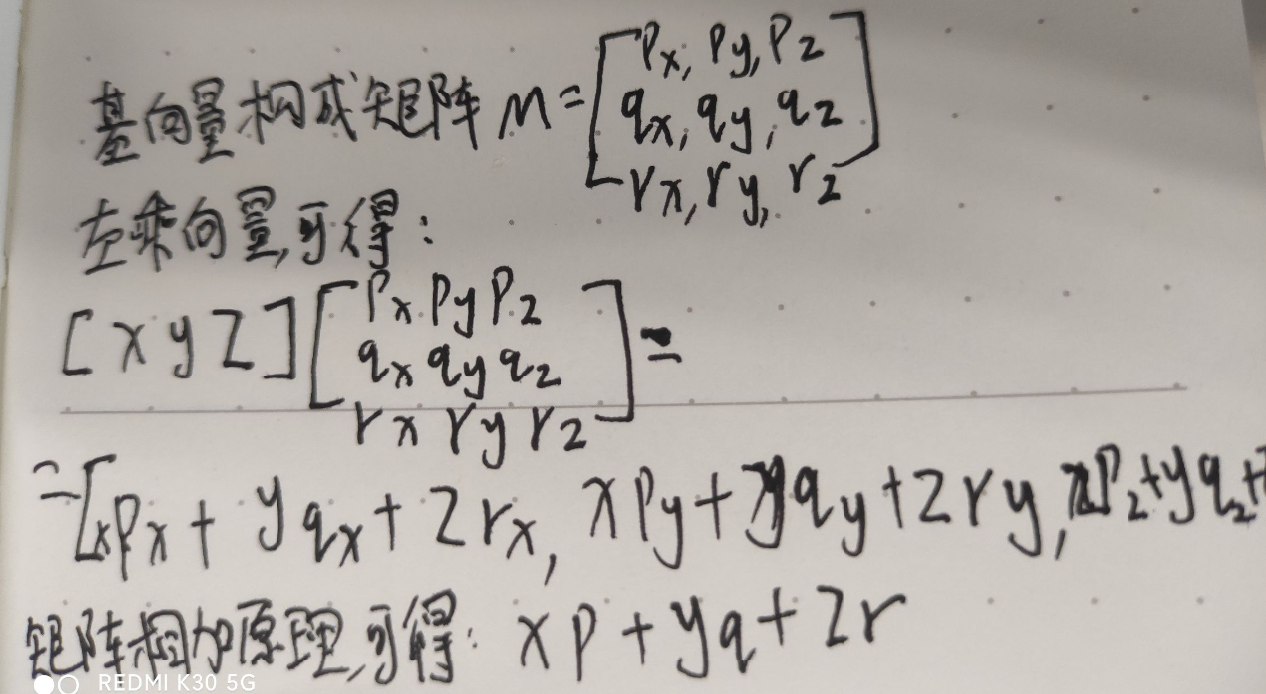 基向量构成矩阵 M=[Px, Py, Pz
qx, qy, qz
rx, ry, rz]
左乘向量,可得:
[x y z][Px Py Pz
qx qy qz
rx ry rz]=
=[xPx + yqx + zrx, xPy + yqy + zry, xPz + yqz +
矩阵相加原理,可得: xp + yq + zr
REDMI K30 5G